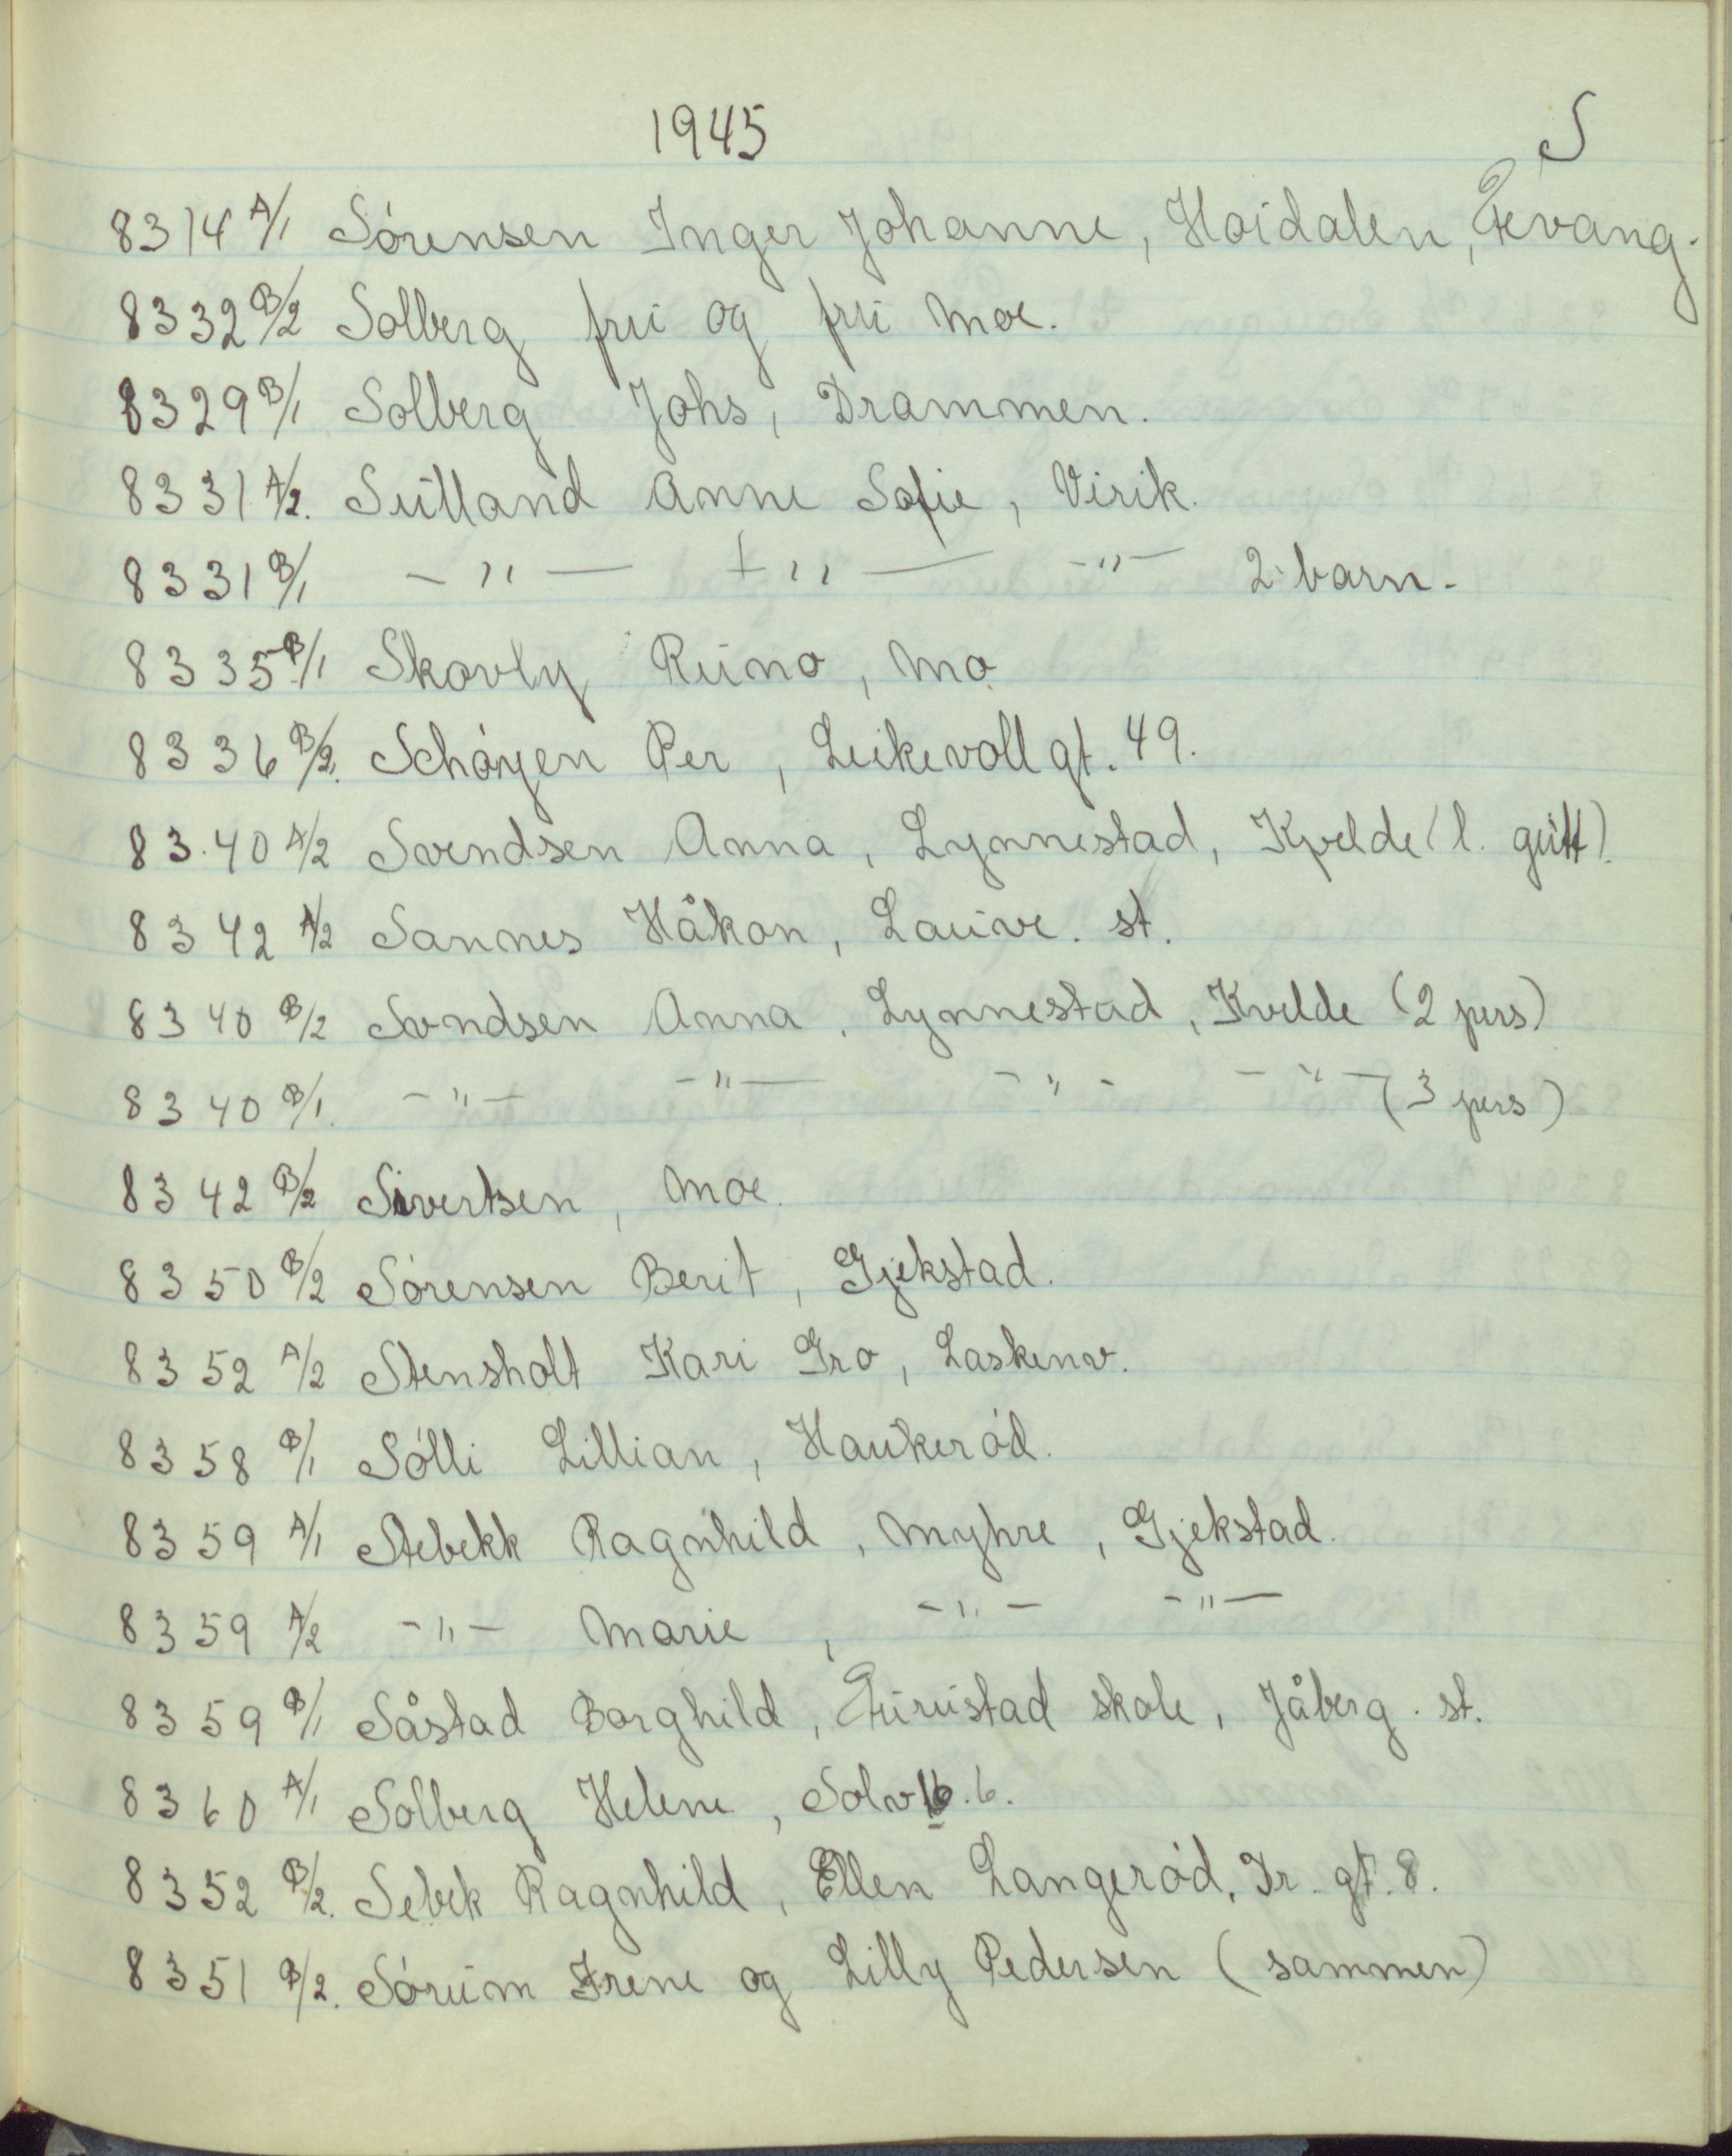 1945 S
8314 A/1 Sørensen Inger Johanne, Hoidalen, Fevang.
8332 B/2 Solberg fru og fru Moe.
8329 B/1 Solberg Johs, Drammen.
8331 A/2. Sulland Anne Sofie, Virik.
8331 B/1 — " — — " — — " — 2 barn.
8335 B/1 Skovly Runo, Mo
8336 B/2. Schøyen Per, Leikevollgt. 49.
8340 A/2 Svendsen Anna, Lynnestad, Kvelde (l. gutt).
8342 A/2 Sannes Håkon, Lauve. st.
8340 B/2 Svndsen Anna, Lynnestad, Kvelde (2 pers)
8340 B/1. — " — — " — — " — — " — (3 pers)
8342 B/2 Sivertsen, Moe.
8350 B/2 Sørensen Berit, Gjekstad.
8352 A/2 Stensholt Kari Gro, Laskenv.
8358 B/1 Sølli Lillian, Haukerød.
8359 A/1 Stebekk Ragnhild, Myhre, Gjekstad.
8359 A/2 — " — Marie, — " — — " —
8359 B/1 Såstad Borghild, Furustad skole, Jåberg. st.
8360 A/1 Solberg Helene, Solv. 6.
8352 B/2. Sebek Ragnhild, Ellen Langerød, Tr. gt. 8.
8351 B/2. Sørum Irene og Lilly Pedersen (sammen)